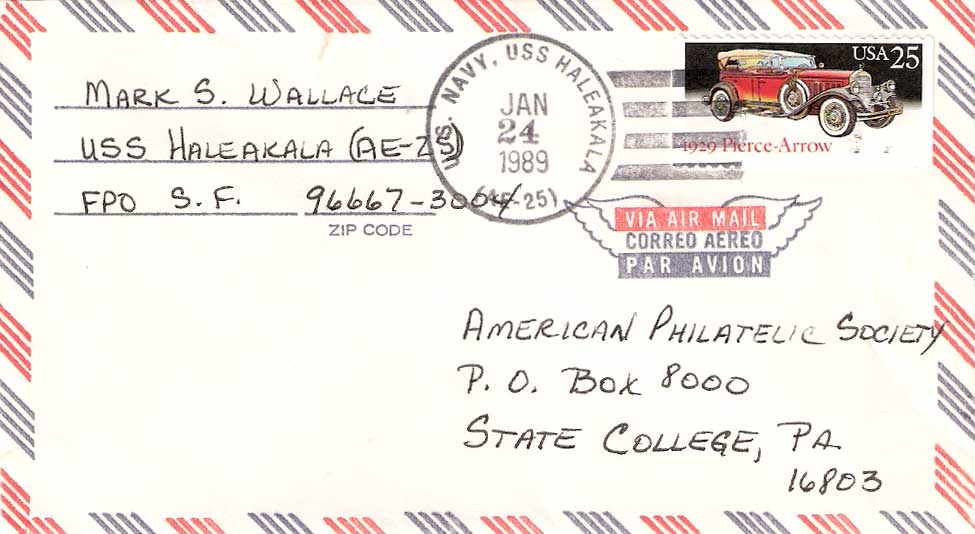 MARK S. WALLACE
USS HALEAKALA (AE-25)
FPO S.F. 96667-3004
ZIP CODE
U.S. NAVY, USS HALEAKALA
JAN
24
1989
(AE-25)
USA 25
1929 Pierce-Arrow
VIA AIR MAIL
CORREO AEREO
PAR AVION
AMERICAN PHILATELIC SOCIETY
P. O. BOX 8000
STATE COLLEGE, PA
16803